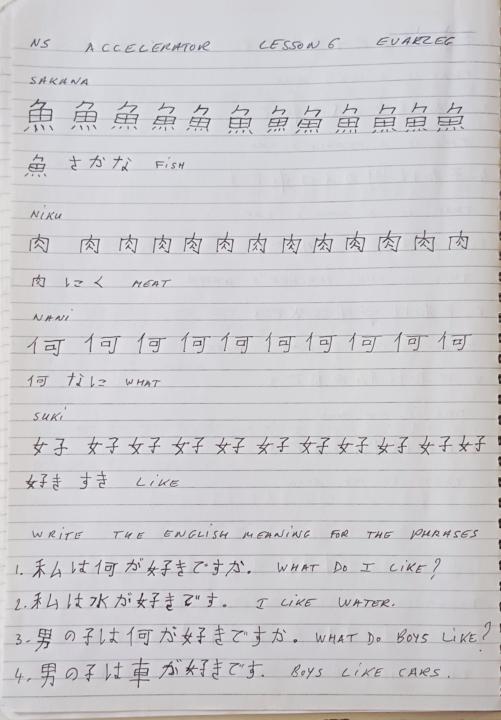 NS ACCELERATOR LESSON 6 EVARZEG
SAKANA
魚 魚 魚 魚 魚 魚 魚 魚 魚 魚 魚 魚
魚 さかな FISH
NIKU
肉 肉 肉 肉 肉 肉 肉 肉 肉 肉 肉 肉 肉
肉 にく MEAT
NANI
何 何 何 何 何 何 何 何 何 何
何 なに WHAT
SUKI
好 好 好 好 好 好 好 好 好 好 好
好き すき LIKE
WRITE THE ENGLISH MEANING FOR THE PHRASES
1. 私は何が好きですか。 WHAT DO I LIKE?
2. 私は水が好きです。 I LIKE WATER.
3. 男の子は何が好きですか。 WHAT DO BOYS LIKE?
4. 男の子は車が好きです. BOYS LIKE CARS.